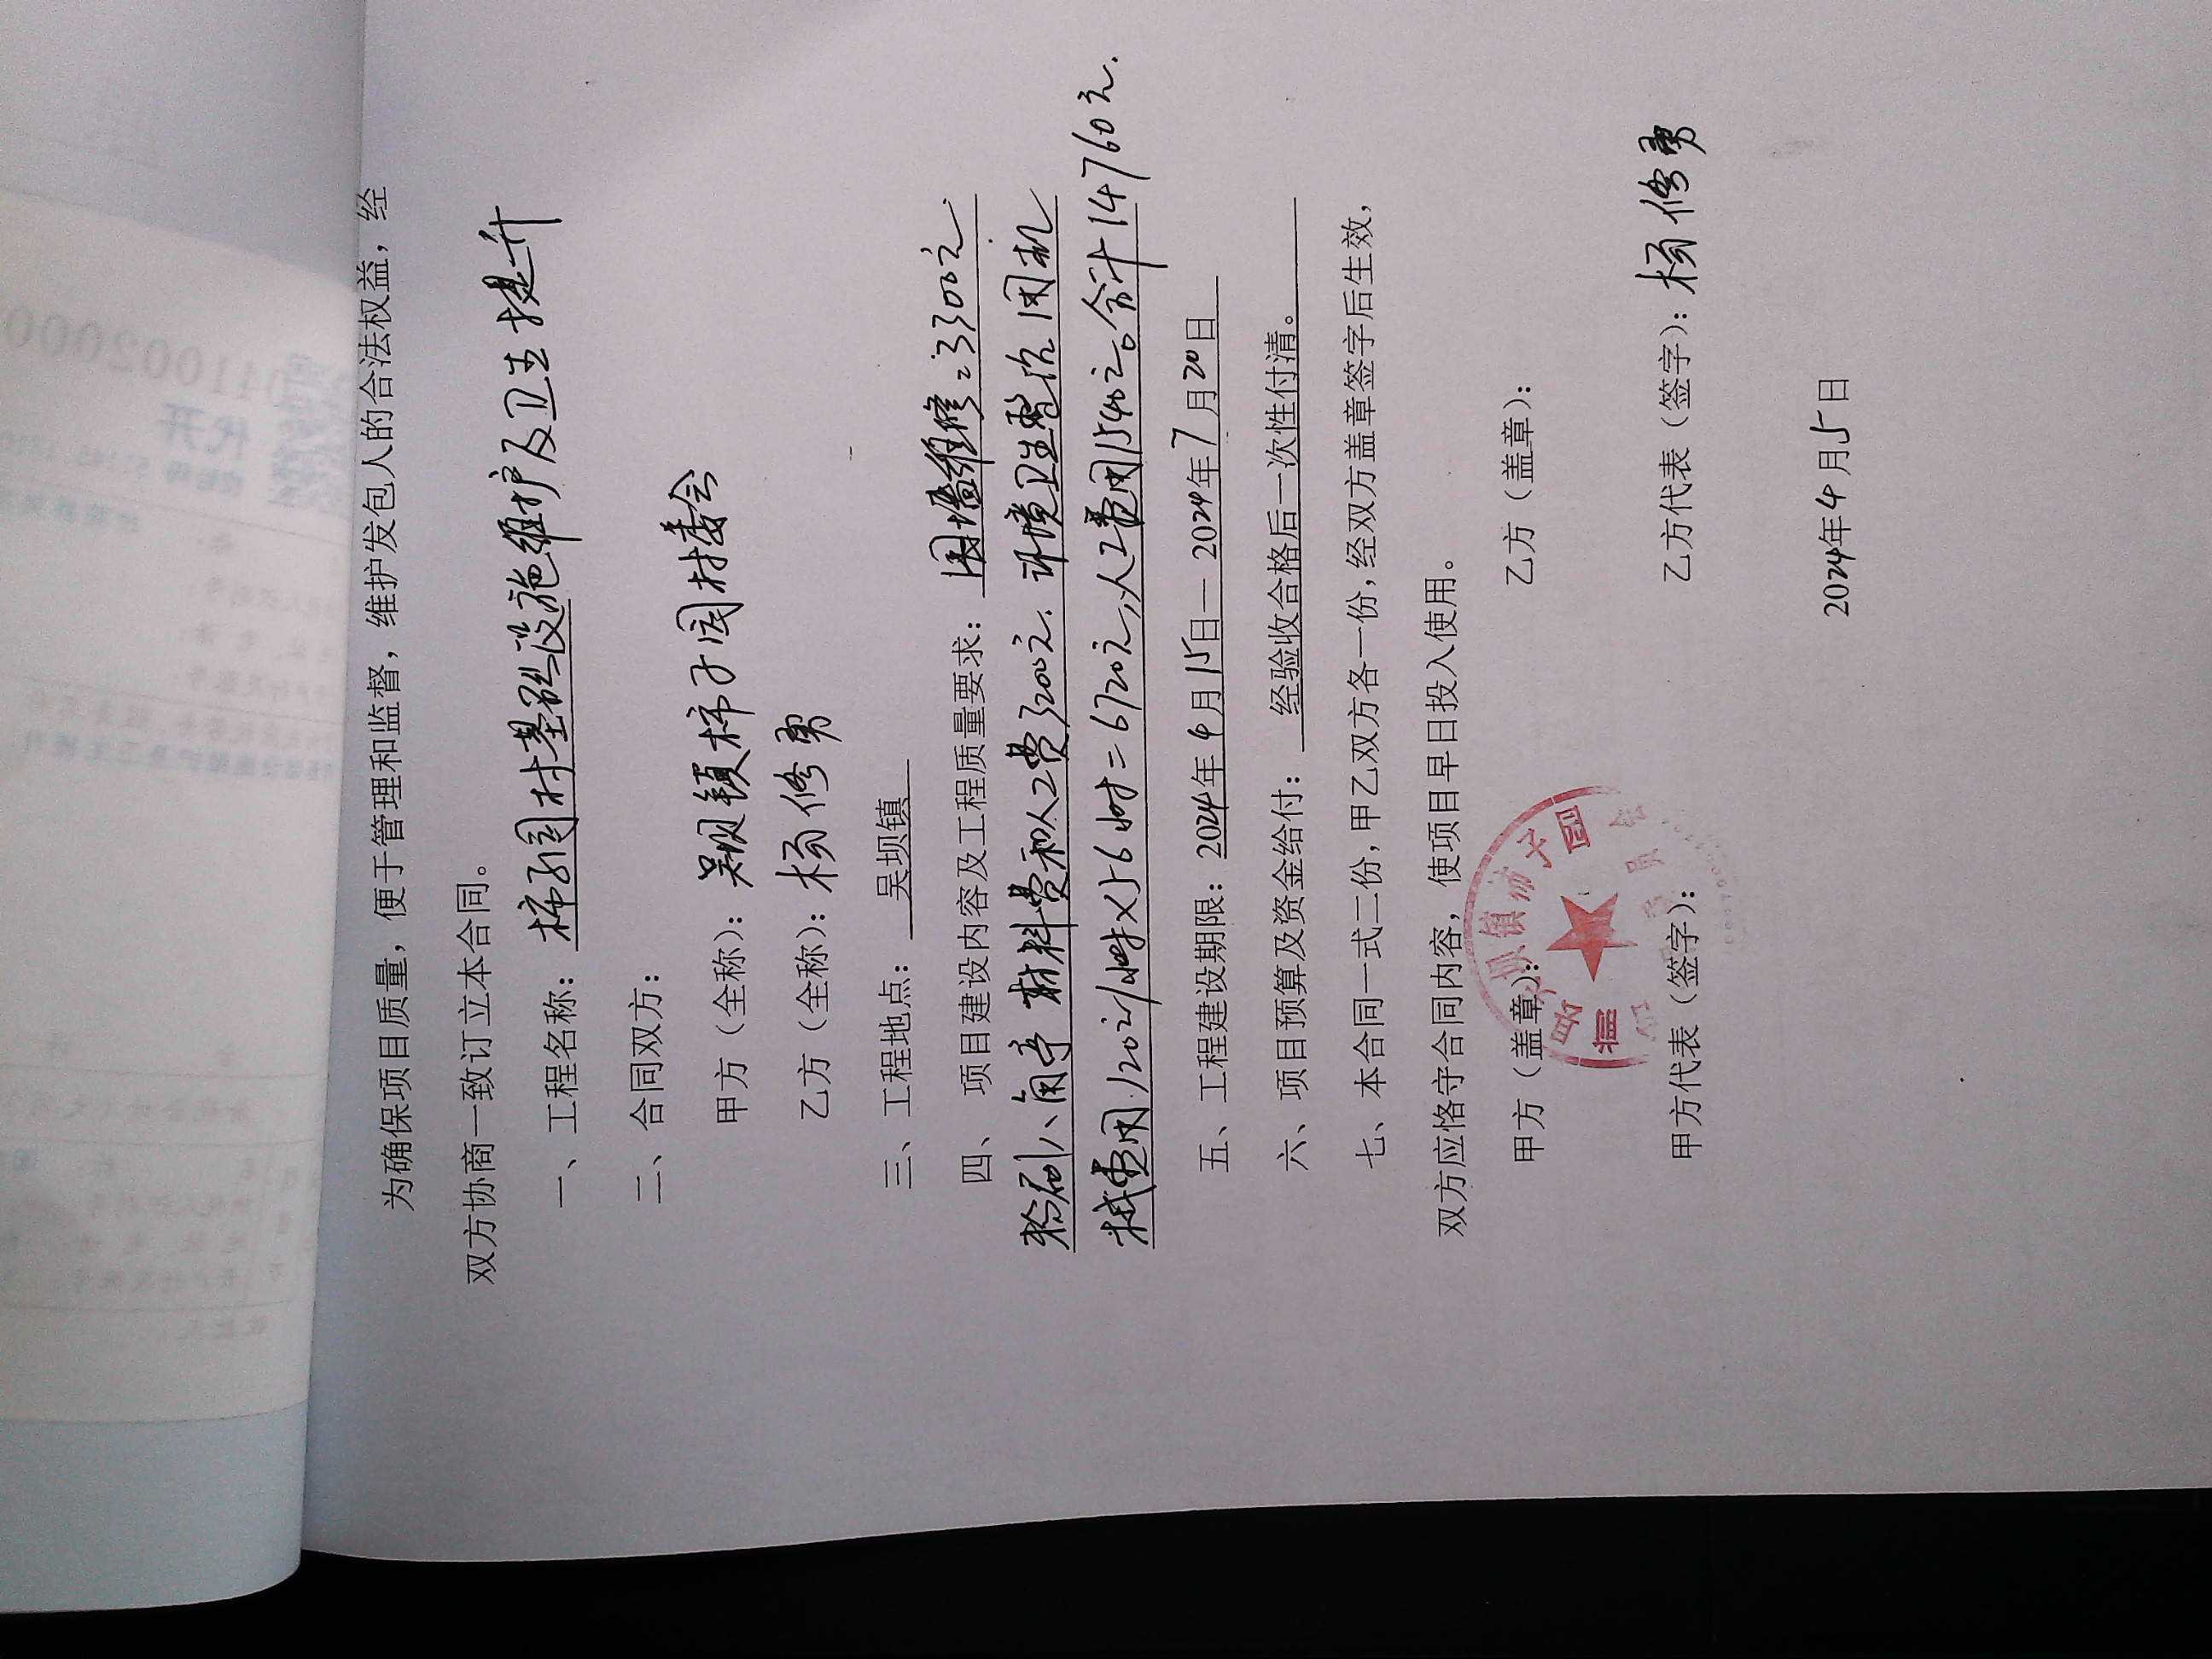 为确保项目质量，便于管理和监督，维护发包人的合法权益，经
双方协商一致订立本合同。
一、工程名称：柿子园村基础设施维护及卫生提升
二、合同双方：
甲方（全称）：吴坝镇柿子园村委会
乙方（全称）：杨修勇
三、工程地点：吴坝镇
四、项目建设内容及工程质量要求：围墙维修：3300元
粉刷八角亭材料费和人工费3200元．环境卫生整治 用机
械费用120元/小时×56小时=6720元，人工费用1540元。合计14760元．
五、工程建设期限：2024年4月15日—2024年7月20日
六、项目预算及资金给付：经验收合格后一次性付清。
七、本合同一式二份，甲乙双方各一份，经双方盖章签字后生效，
双方应恪守合同内容，使项目早日投入使用。
甲方（盖章）： 乙方（盖章）：
甲方代表（签字）： 乙方代表（签字）：杨修勇
2024年4月15日
代开